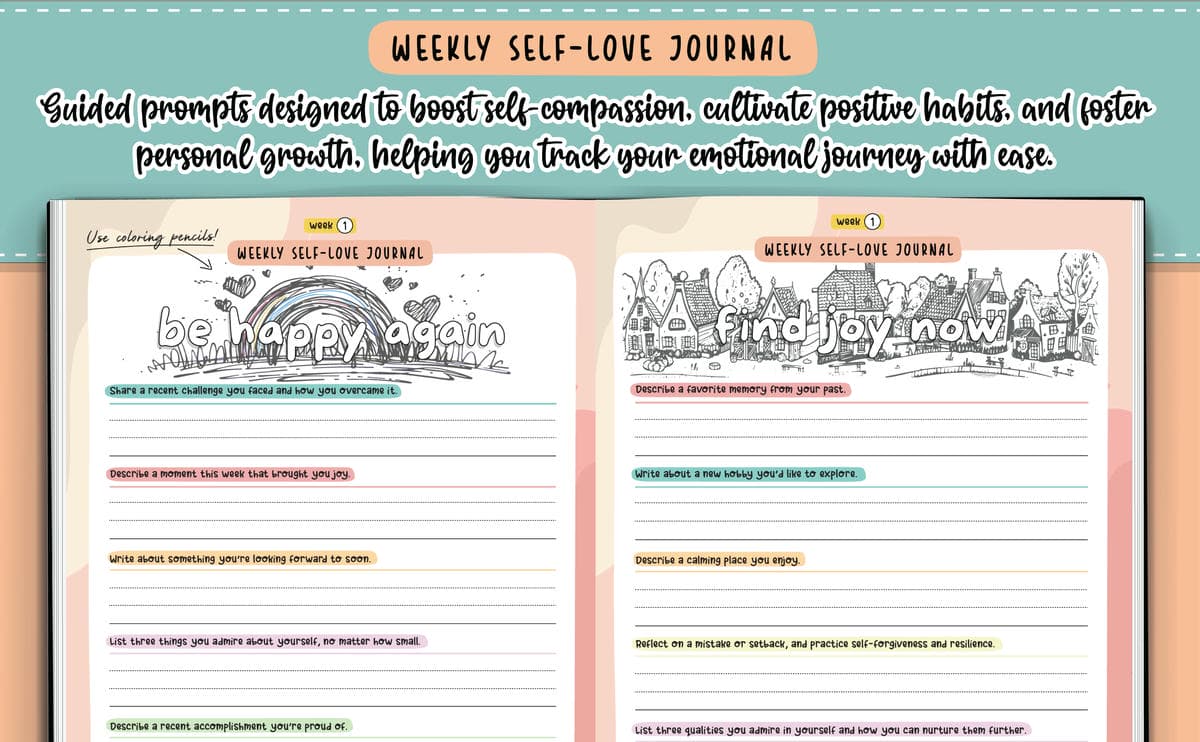 WEEKLY SELF-LOVE JOURNAL
Guided prompts designed to boost self-compassion, cultivate positive habits, and foster
personal growth, helping you track your emotional journey with ease.
Use coloring pencils!
week 1
WEEKLY SELF-LOVE JOURNAL
be happy again
Share a recent challenge you faced and how you overcame it.
Describe a moment this week that brought you joy.
Write about something you're looking forward to soon.
List three things you admire about yourself, no matter how small.
Describe a recent accomplishment you're proud of.
week 1
WEEKLY SELF-LOVE JOURNAL
find joy now
Describe a favorite memory from your past.
Write about a new hobby you'd like to explore.
Describe a calming place you enjoy.
Reflect on a mistake or setback, and practice self-forgiveness and resilience.
List three qualities you admire in yourself and how you can nurture them further.